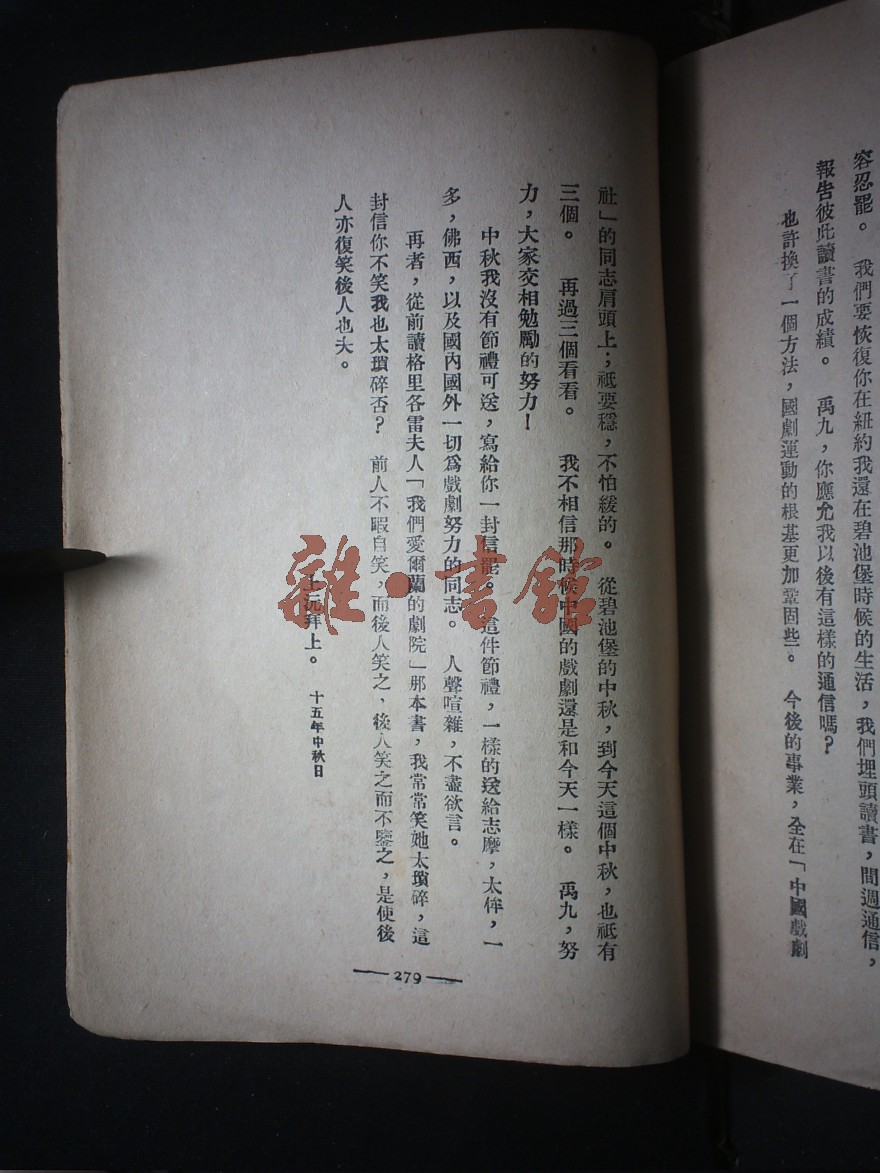 容忍罷。　我們要恢復你在紐約我還在碧池堡時候的生活，我們埋頭讀書，間週通信，
報告彼此讀書的成績。　禹九，你應允我以後有這樣的通信嗎？
也許換了一個方法，國劇運動的根基更加鞏固些。　今後的事業，全在「中國戲劇
社」的同志肩頭上；祇要穩，不怕緩的。　從碧池堡的中秋，到今天這個中秋，也祇有
三個。　再過三個看看。　我不相信那時候中國的戲劇還是和今天一樣。　禹九，努
力，大家交相勉勵的努力！
中秋我沒有節禮可送，寫給你一封信罷。　這件節禮，一樣的送給志摩，太侔，一
多，佛西，以及國內國外一切爲戲劇努力的同志。　人聲喧雜，不盡欲言。
再者，從前讀格里各雷夫人「我們愛爾蘭的劇院」那本書，我常常笑她太瑣碎，這
封信你不笑我也太瑣碎否？　前人不暇自笑，而後人笑之，後人笑之而不鑒之，是使後
人亦復笑後人也夫。
上沅拜上。　十五年中秋日
279
雜·書館